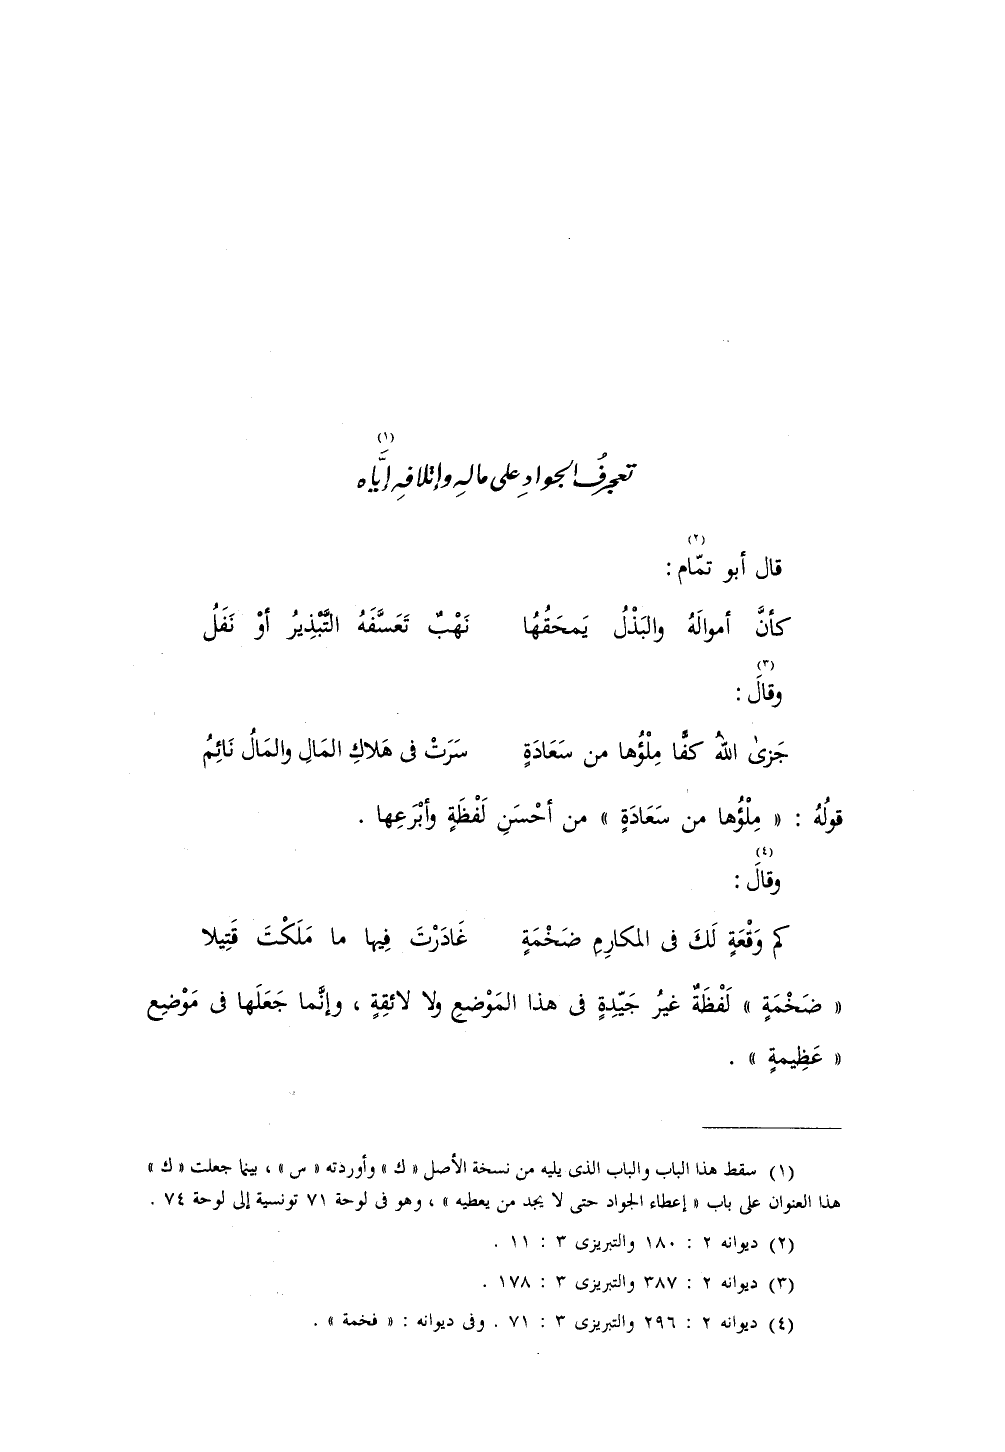 (١)
تعجرفُ الجوادِ على مالِهِ وإتلافِهِ إيَّاه
(٢)
قال أبو تمّام :
كأنَّ أموالَهُ والبَذْلُ يَمحَقُهُا نَهْبٌ تَعَسَّفَهُ التَّبْذِيرُ أوْ نَفَلُ
(٣)
وقالَ :
جَزىٰ اللهُ كفًّا مِلْؤُها من سَعَادَةٍ سَرَتْ فى هَلاكِ المَالِ والمَالُ نَائِمُ
قولُهُ : « مِلْؤُها من سَعَادَةٍ » من أحْسَنِ لَفْظَةٍ وأبْرَعِها .
(٤)
وقالَ :
كم وَقْعَةٍ لَكَ فى المكارِمِ ضَخْمَةٍ غَادَرْتَ فِيها ما مَلَكْتَ قَتِيلا
« ضَخْمَةٍ » لَفْظَةٌ غيرُ جَيّدِةٍ فى هذا المَوْضعِ ولا لائقِةٍ ، وإنَّما جَعَلَها فى مَوْضيِع
« عَظِيمةٍ » .
(١) سقط هذا الباب والباب الذى يليه من نسخة الأصل « ك » وأوردته « س » ، بينما جعلت « ك »
هذا العنوان على باب « إعطاء الجواد حتى لا يجد من يعطيه » ، وهو فى لوحة ٧١ تونسية إلى لوحة ٧٤ .
(٢) ديوانه ٢ : ١٨٠ والتبريزى ٣ : ١١ .
(٣) ديوانه ٢ : ٣٨٧ والتبريزى ٣ : ١٧٨ .
(٤) ديوانه ٢ : ٢٩٦ والتبريزى ٣ : ٧١ . وفى ديوانه : « فخمة » .